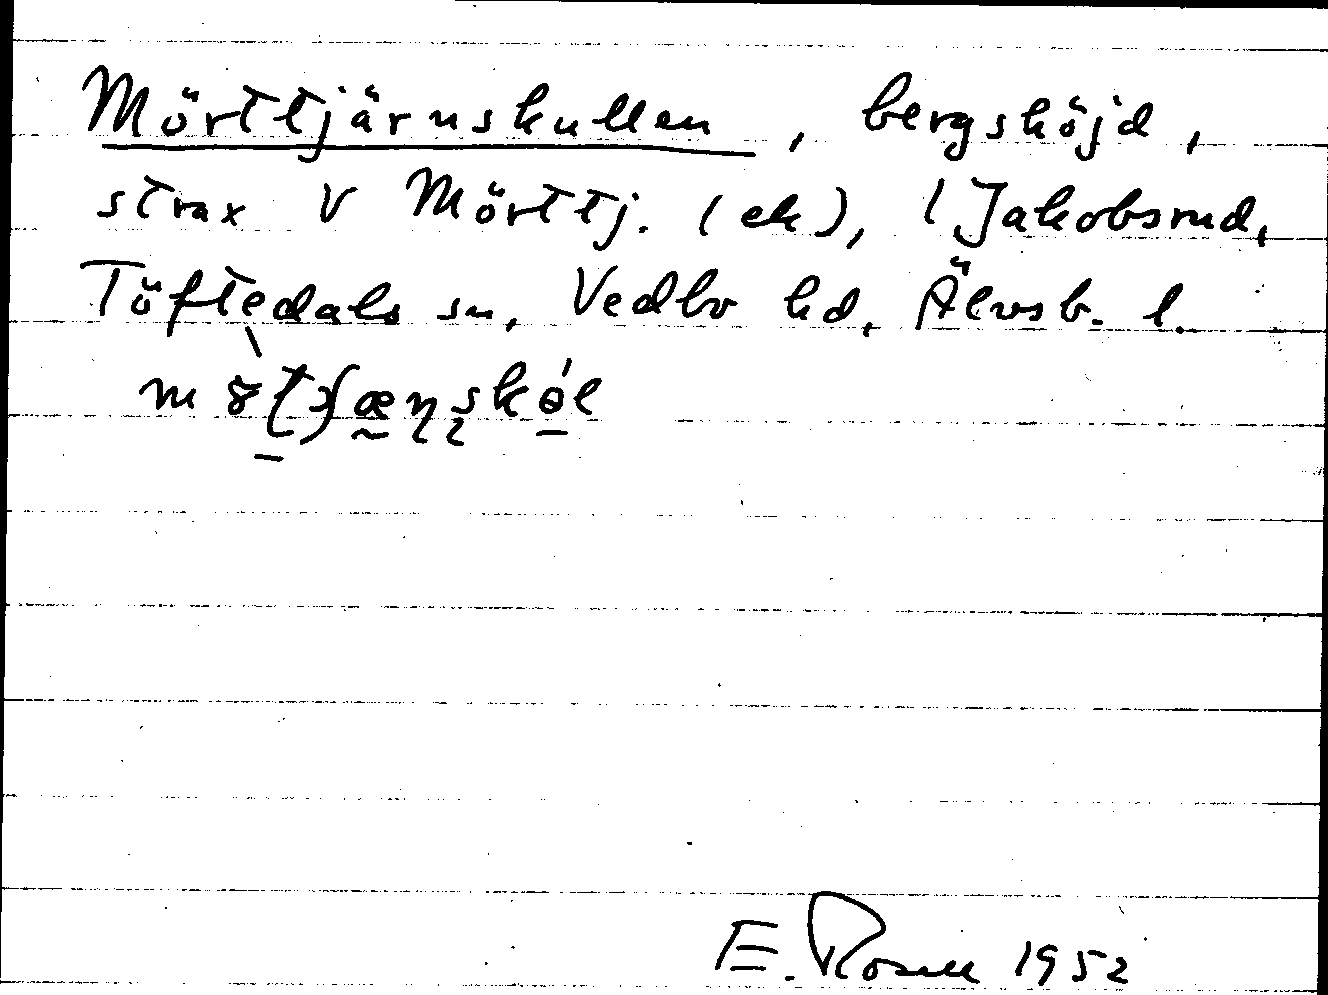 Mörttjärnskullen, bergshöjd,
strax V Mörttj. (ek), l Jakobsrud,
Töftedals sn, Vedbo hd, Älvsb. l.
E. Rosell 1952